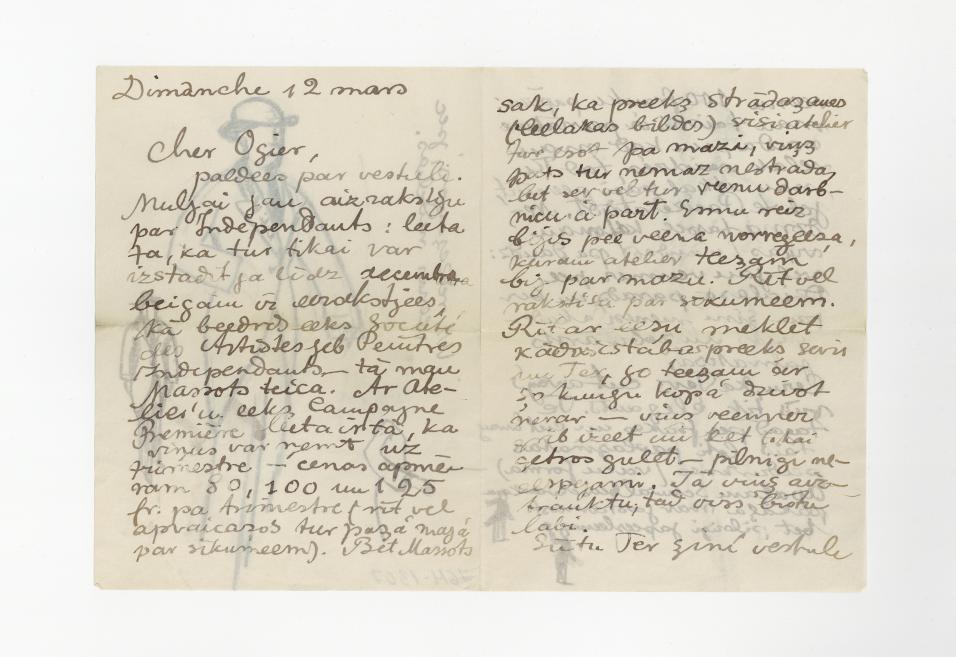 Dimanche 12 mars
Cher Ogier,
paldees par vestuli.
Muljai jau aizrakstiju
par Indépendants : leeta
ta, ka tur tikai var
izstadit ja lidz decembra
beigam
ka beedris eeks Société
des Artistes Peintres
Indépendants – tā man
Massots teica. Ar Ate-
lier'u eeks Campagne
Première leeta irta, ka
viņus var nemt uz
trimestre – cenas apmē-
ram 80, 100 un 125
fr. pa trimestre (rit vel
apraicašos tur paša majā
par sikumeem). Bet Massots
sak, ka preeks strādašanas
(leelakas bildes) visi atelier
tur esot pa mazi, viņš
pats tur nemaz nestrāda
bet sev vel tur vienu darb-
nicu à part. Esmu reiz
bijis pee veena norvegeeša,
kuram atelier teešam
bij par mazu. Rit vel
rakstišu par sikumeem.
Rit ar eešu meklet
kādu istabas preeks sevis
un Ter, jo teešam ar
šo kungu kopā dzivot
nevar – viņš veenmer
grib iziet un eet tikai
četros gulet – pilnigi ne-
espejami. Ja viņš aiz-
trauktu, tad viss butu
labi.
Sūtu Ter ziņi vestule